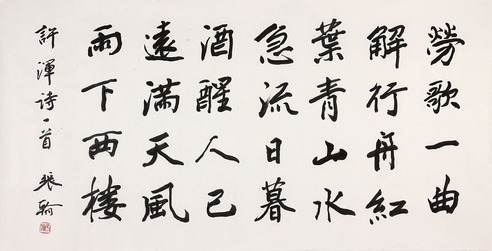 勞歌一曲
解行舟紅
葉青山水
急流日暮
酒醒人已
遠滿天風
雨下西樓
許渾詩一首 張